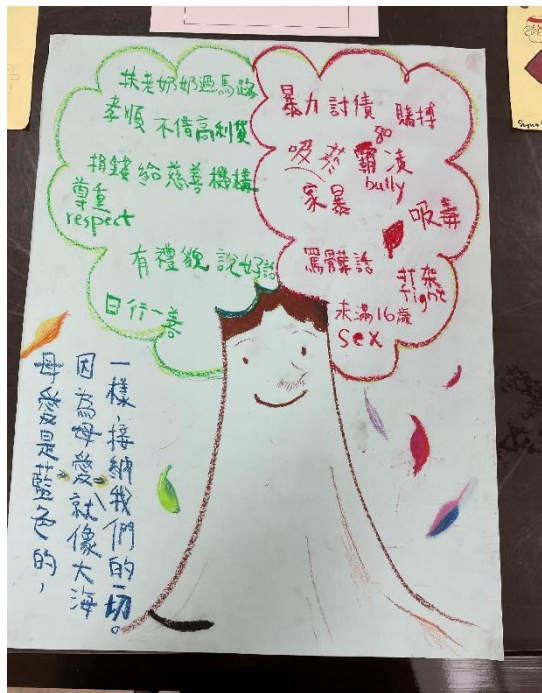 扶老奶奶過馬路
孝順 不借高利貸
捐錢給慈善機構
尊重
respect
有禮貌 說好話
日行一善
暴力討債 賭博
go
吸菸 霸凌
bully
家暴
吸毒
罵髒話
打架
fight
未滿16歲
sex
母愛是藍色的，
因為母愛就像大海
一樣，接納我們的一切。